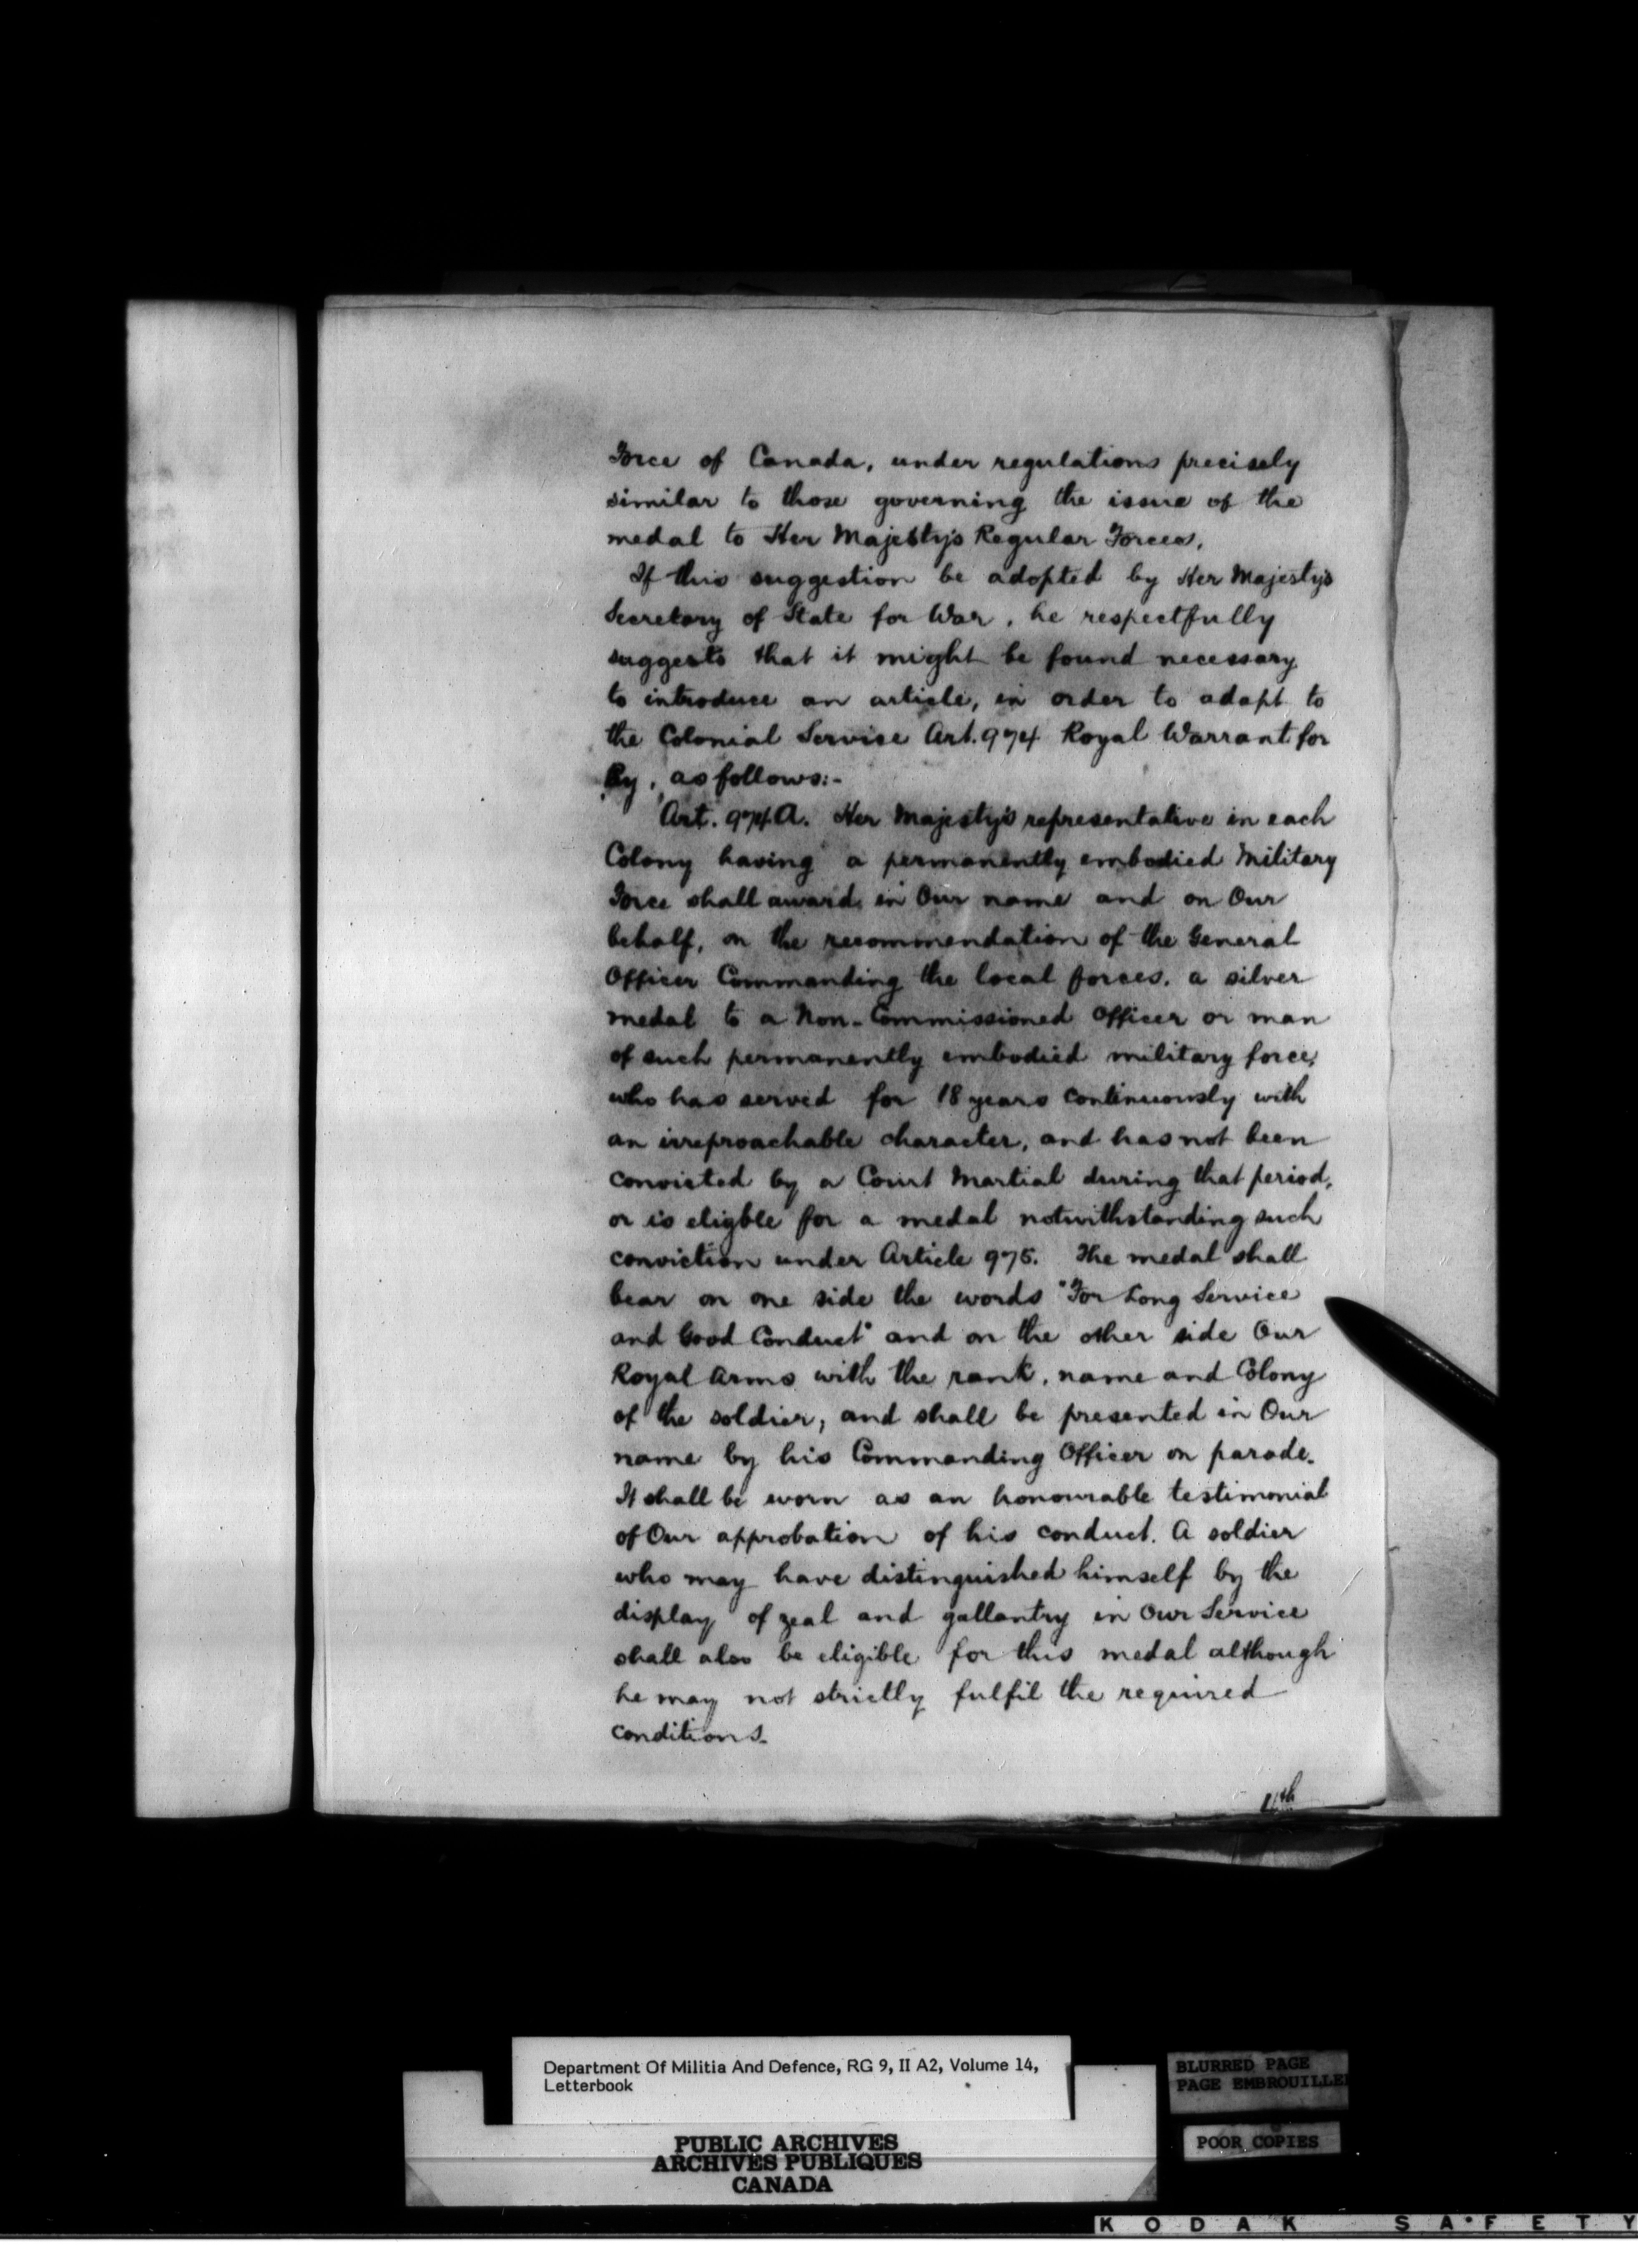 Force of Canada, under regulations precisely
similar to those governing the issue of the
medal to Her Majesty's Regular Forces,
If this suggestion be adopted by Her Majesty's
Secretary of State for War, he respectfully
suggests that it might be found necessary
to introduce an article, in order to adapt to
the Colonial Service Art. 974 Royal Warrant for
as follows:-
Art. 974A. Her Majesty's representative in each
Colony having a permanently embodied Military
Force shall award in Our name and on Our
behalf, on the recommendation of the General
Officer Commanding the local forces, a silver
medal to a Non-Commissioned Officer or man
of such permanently embodied military force,
who has served for 18 years continuously with
an irreproachable character, and has not been
convicted by a Court Martial during that period,
or is eligble for a medal notwithstanding such
conviction under Article 975. The medal shall
bear on one side the words "For Long Service
and Good Conduct" and on the other side Our
Royal Arms with the rank, name and Colony
of the soldier, and shall be presented in Our
name by his Commanding Officer on parade.
It shall be worn as an honourable testimonial
of Our approbation of his conduct. A soldier
who may have distinguished himself by the
display of zeal and gallantry in Our Service
shall also be eligible for this medal although
he may not strictly fulfil the required
conditions.
Department Of Militia And Defence, RG 9, II A2, Volume 14,
Letterbook
BLURRED PAGE
PAGE EMBROUILLE
POOR COPIES
PUBLIC ARCHIVES
ARCHIVES PUBLIQUES
CANADA
KODAK SAFETY